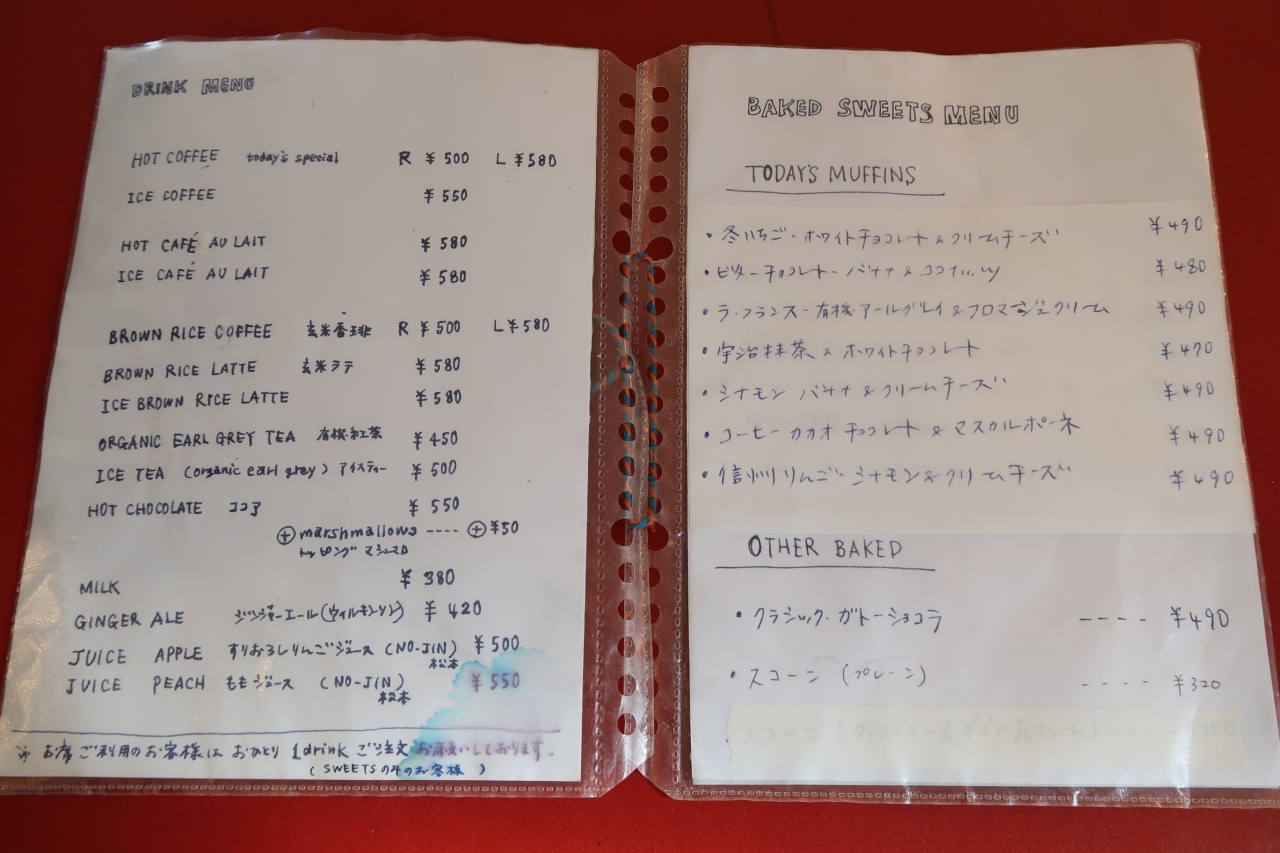 DRINK MENU
HOT COFFEE today's special R ¥500 L ¥580
ICE COFFEE ¥550
HOT CAFÉ AU LAIT ¥580
ICE CAFÉ AU LAIT ¥580
BROWN RICE COFFEE 玄米香琲 R ¥500 L ¥580
BROWN RICE LATTE 玄米ラテ ¥580
ICE BROWN RICE LATTE ¥580
ORGANIC EARL GREY TEA 有機・紅茶 ¥450
ICE TEA (organic earl grey) アイスティー ¥500
HOT CHOCOLATE ココア ¥550
⊕ marshmallows ---- ⊕ ¥50
トッピング マシュマロ
MILK ¥380
GINGER ALE ジンジャーエール(ウィルキンソン) ¥420
JUICE APPLE すりおろしりんごジュース (NO-JIN) ¥500
松本
JUICE PEACH ももジュース (NO-JIN) ¥550
松本
※ お席ご利用のお客様は おひとり 1drink ご注文お願いしております.
(SWEETSのみのお客様)
BAKED SWEETS MENU
TODAY'S MUFFINS
・冬いちご・ホワイトチョコレート&クリームチーズ ¥490
・ビターチョコレート・バナナ&ココナッツ ¥480
・ラ・フランス・有機・アールグレイ&フロマージュクリーム ¥490
・宇治抹茶&ホワイトチョコレート ¥470
・シナモン バナナ&クリームチーズ ¥490
・コーヒーカカオチョコレート&マスカルポーネ ¥490
・信州りんご シナモン&クリームチーズ ¥490
OTHER BAKED
・クラシック・ガトーショコラ ---- ¥490
・スコーン (プレーン) ---- ¥320